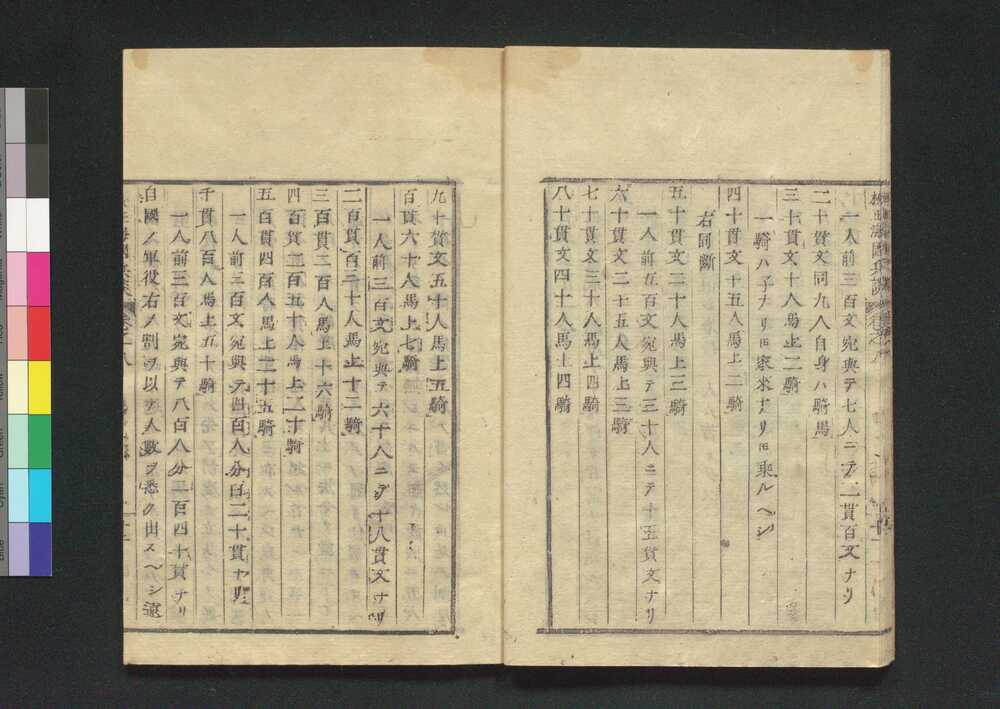 一人前三百文宛與テ七人ニテ二貫百文ナリ
二十貫文同九人自身ハ騎馬
三十貫文十人馬上二騎
一騎ハ子ナリ𪜈家來ナリ𪜈乘ルヘシ
四十貫文十五人馬上二騎
右同斷
五十貫文二十人馬上三騎
一人前五百文宛與テ三十人ニテ十五貫文ナリ
六十貫文二十五人馬上三騎
七十貫文三十人馬上四騎
八十貫文四十人馬上四騎
九十貫文五十人馬上五騎
百貫六十人馬上七騎
一人前三百文宛與テ六十人ニテ十八貫文ナリ
二百貫百三十人馬上十二騎
三百貫二百人馬上十六騎
四百貫三百五十人馬上二十騎
五百貫四百人馬上二十五騎
一人前三百文宛與テ四百人分百二十貫ナリ
千貫八百人馬上五十騎
一人前三百文宛與テ八百人分二百四十貫ナリ
自國ノ軍役右ノ割ヲ以テ人數ヲ悉ク出スヘシ遠